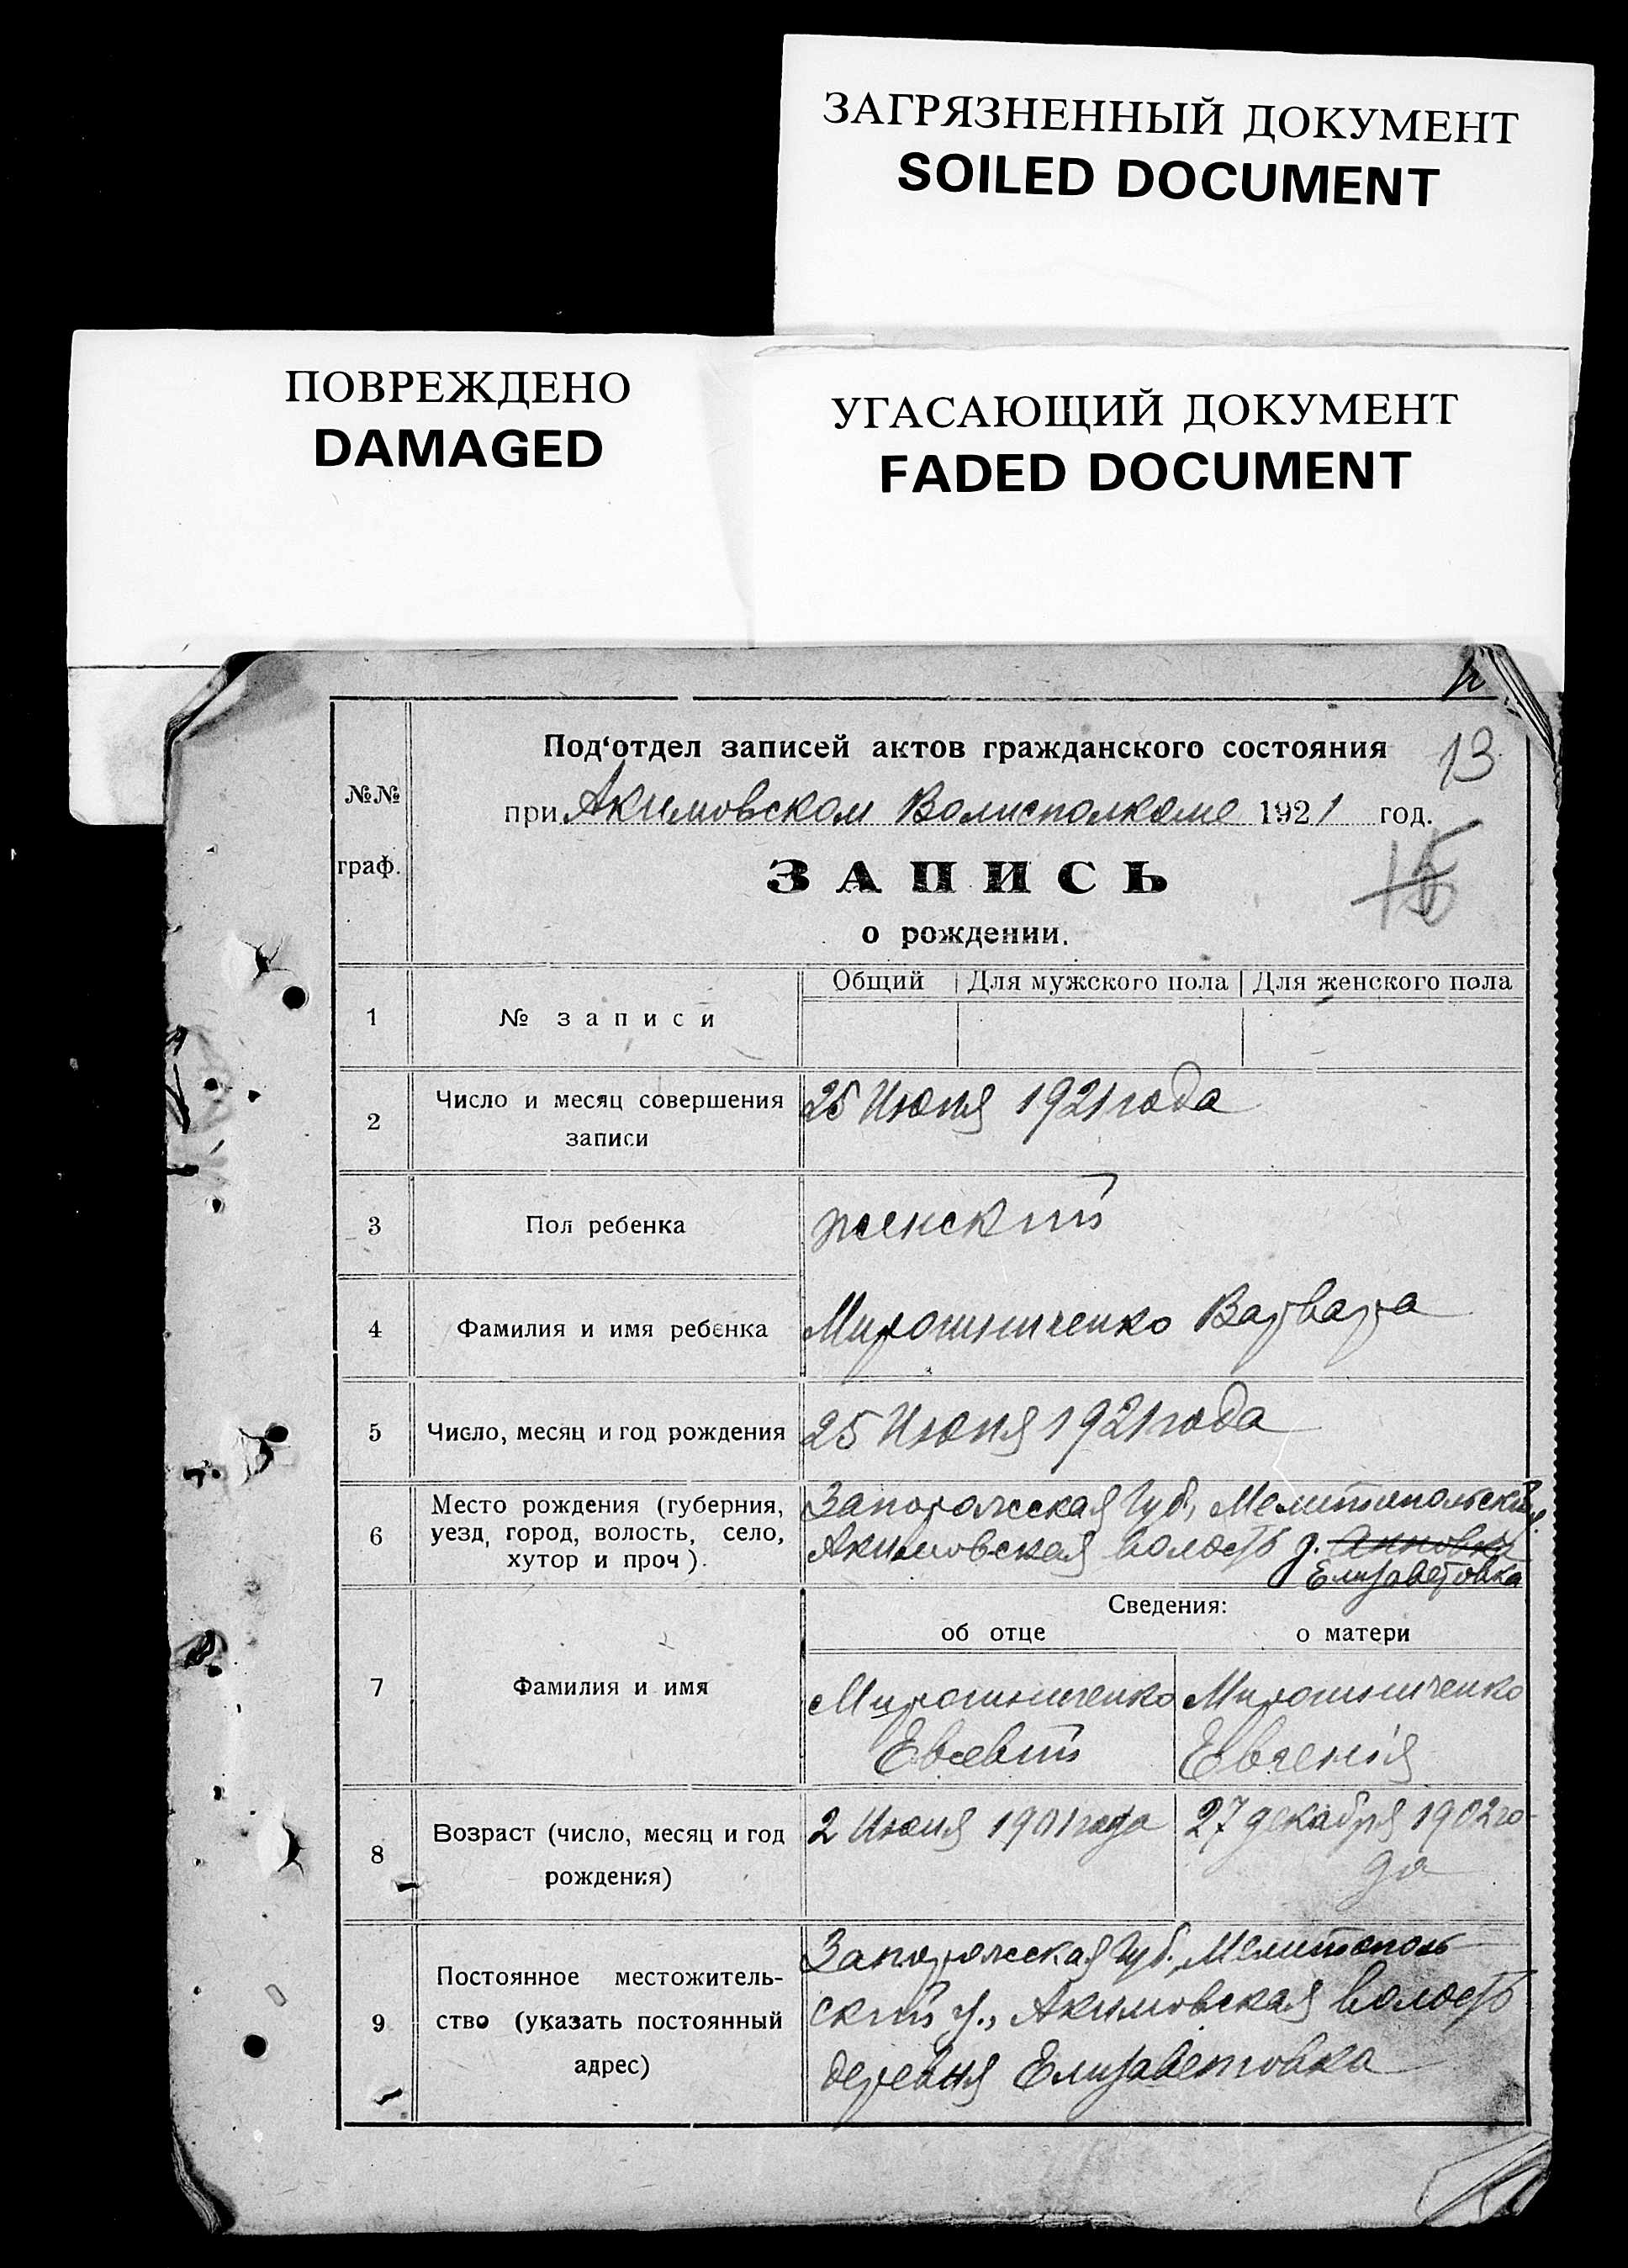 ЗАГРЯЗНЕННЫЙ ДОКУМЕНТ
SOILED DOCUMENT
ПОВРЕЖДЕНО
DAMAGED
УГАСАЮЩИЙ ДОКУМЕНТ
FADED DOCUMENT
13
Под‘отдел записей актов гражданского состояния
№№ граф.
при Акимовском Волисполкоме 1921 год.
15
ЗАПИСЬ
о рождении.
Общий Для мужского пола Для женского пола
1 № записи
2 Число и месяц совершения записи
25 Июня 1921 года
3 Пол ребенка
женский
4 Фамилия и имя ребенка
Мирошниченко Варвара
5 Число, месяц и год рождения
25 Июня 1921 года
6 Место рождения (губерния,
уезд, город, волость, село,
хутор и проч).
Запорожская Губ., Мелитопольский у.
Акимовская волость д. Анновка
Елизаветовка
Сведения:
об отце о матери
7 Фамилия и имя
Мирошниченко Мирошниченко
Евсевий Евгенія
8 Возраст (число, месяц и год
рождения)
2 Июня 1901 года 27 декабря 1902 го-
да
9 Постоянное местожитель-
ство (указать постоянный
адрес)
Запорожская Губ., Мелитополь-
ский у., Акимовская волость
деревня Елизаветовка